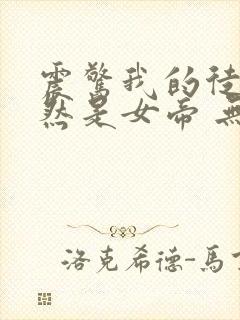 震驚我的徒
然是女帝 無
洛克希德-馬丁